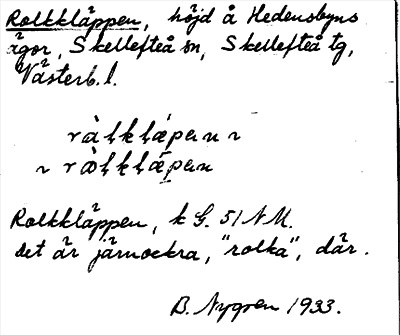 Rolkkläppen, höjd å Hedensbyns
ägor, Skellefteå sn, Skellefteå tg,
Västerb. l.
Rolkkläppen, k G. 51 NM.
det är järnockra, "rolka", där.
B. Nygren 1933.